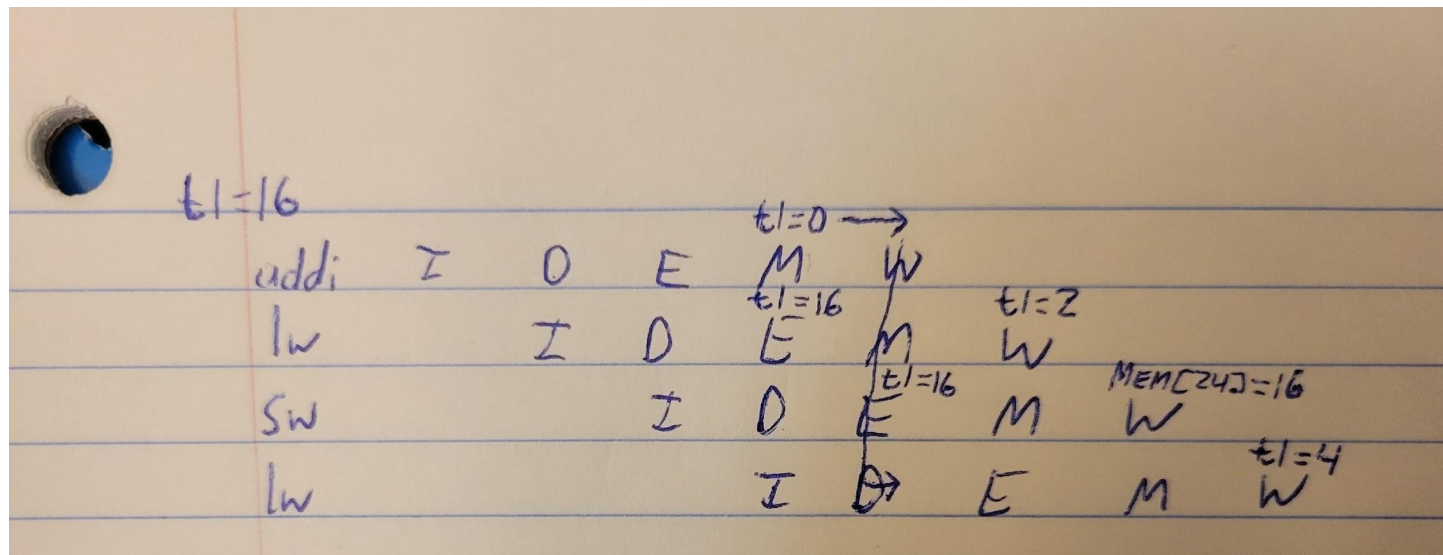 t1=16
t1=0 →
addi I D E M W
t1=16 t1=2
lw I D E M W
t1=16 MEM[24]=16
sw I D E M W
t1=4
lw I D→ E M W